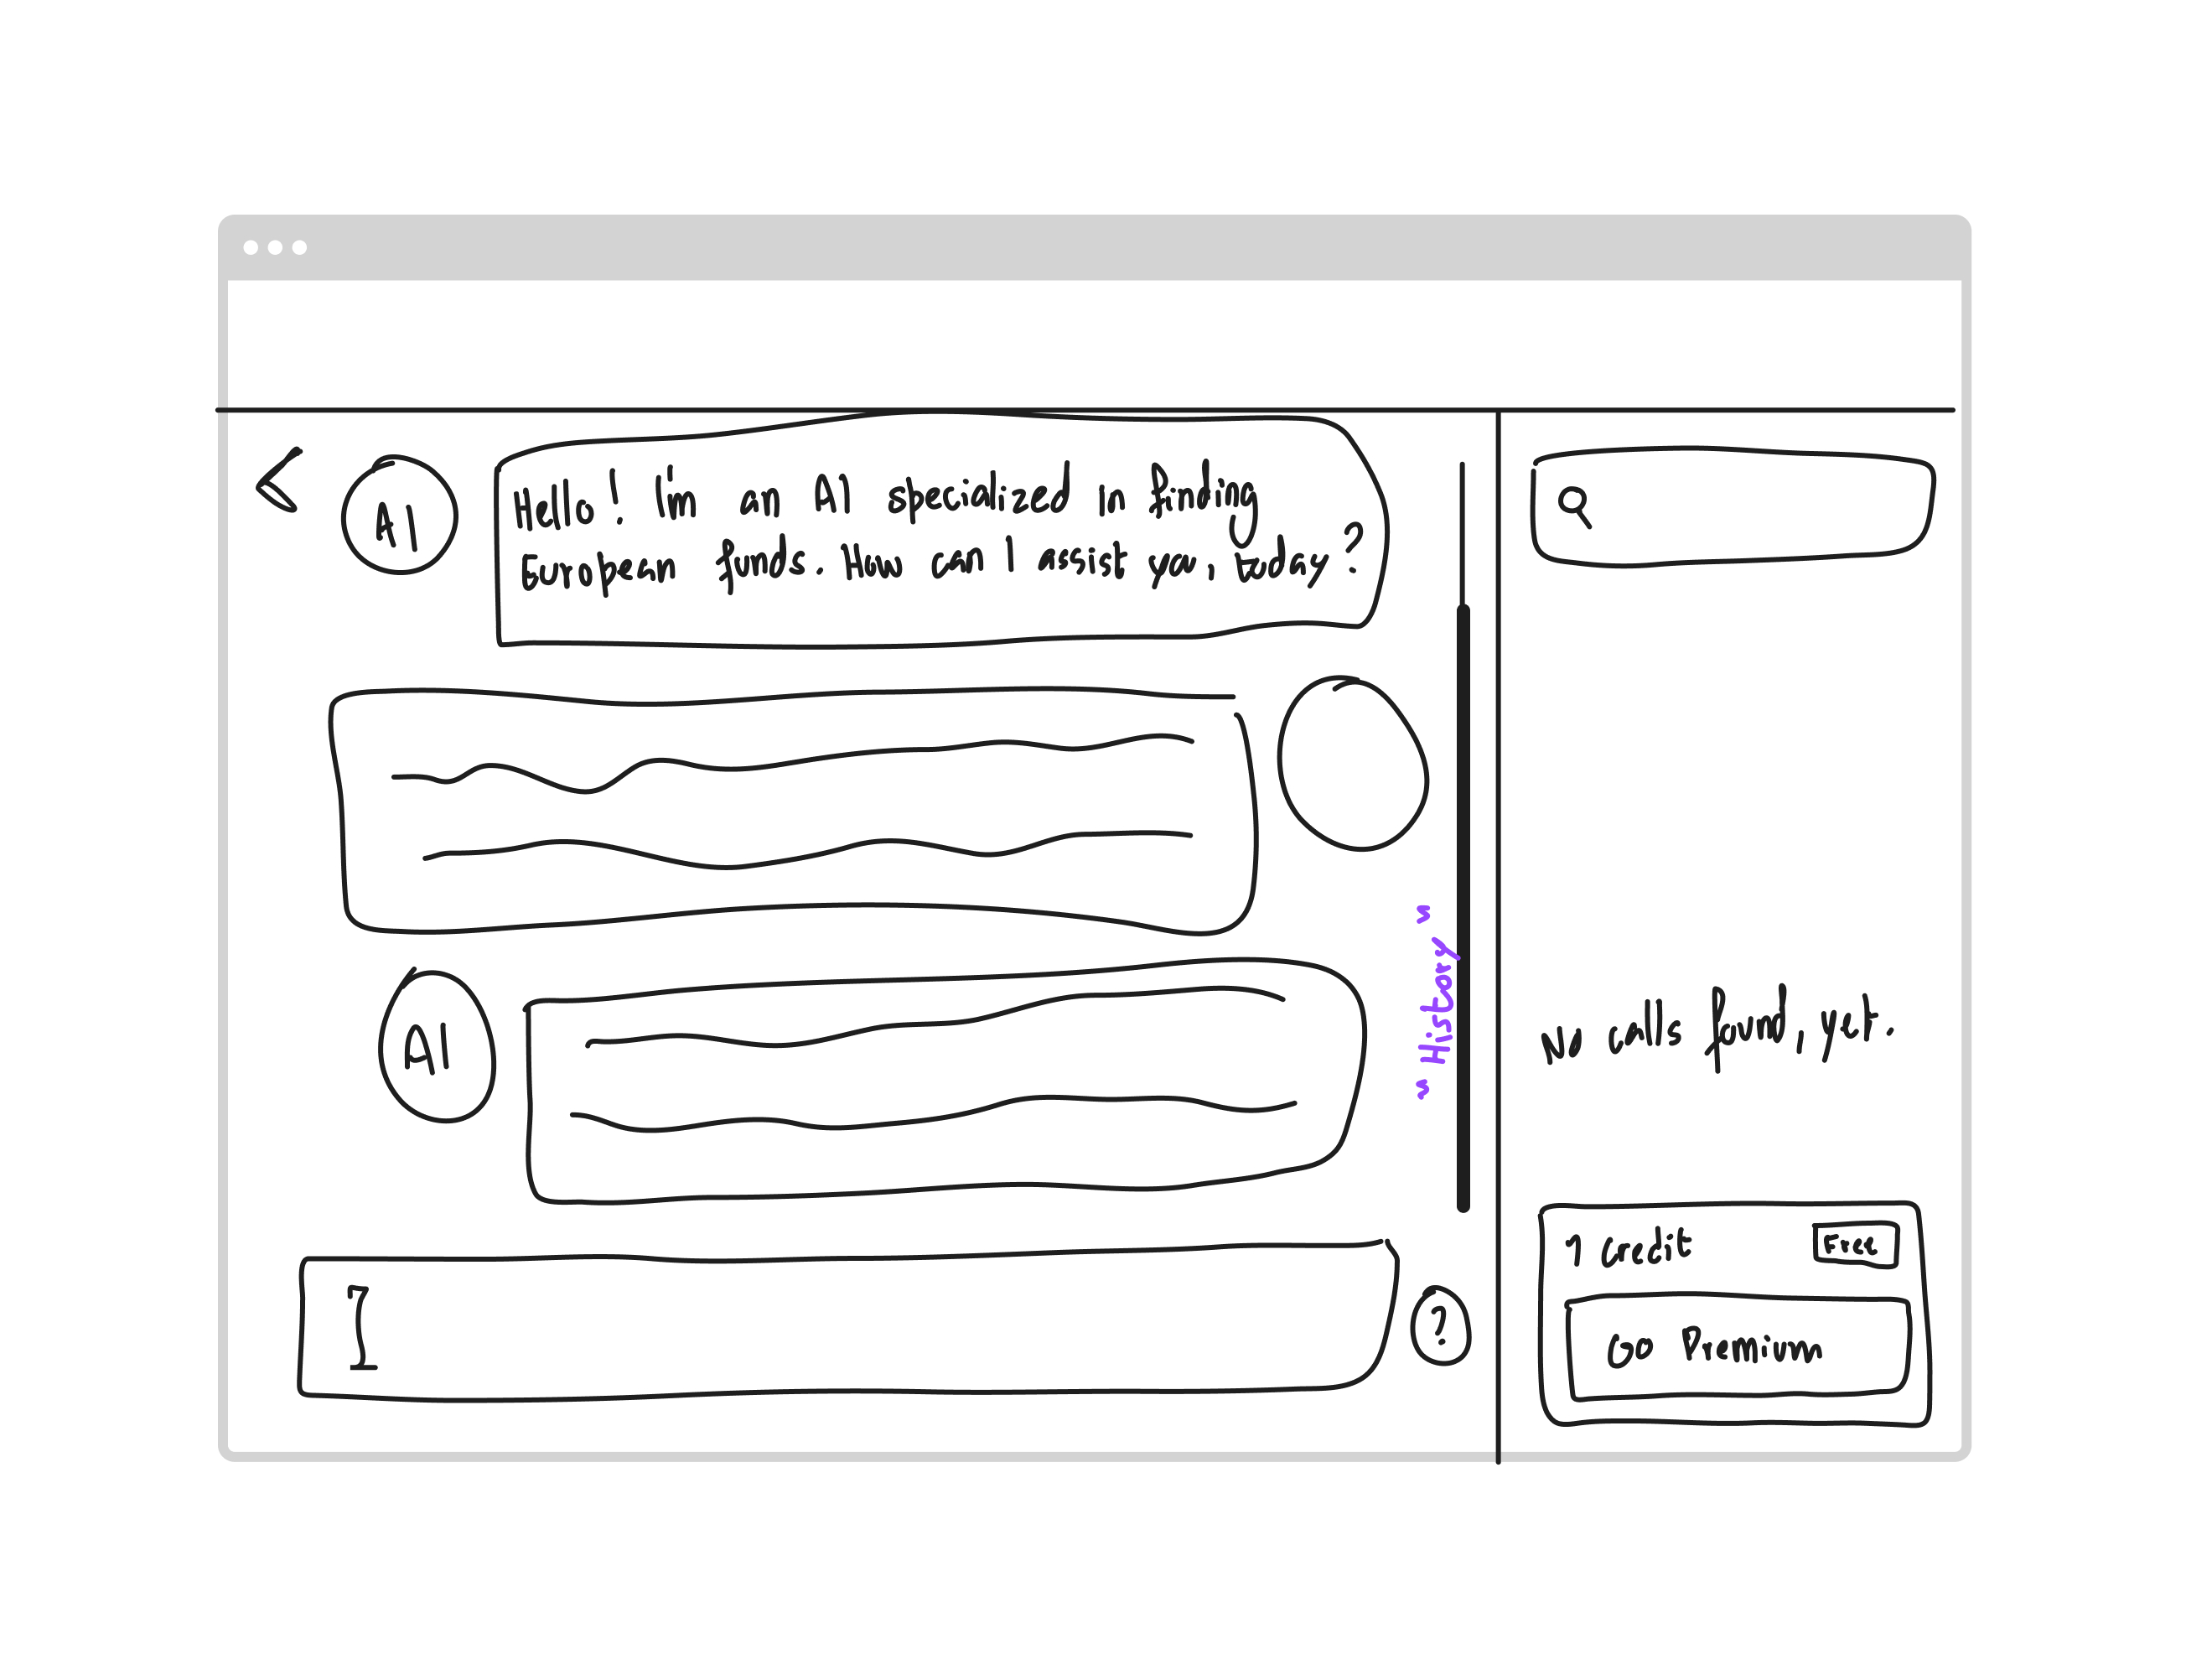 AI
Hello! I'm an AI specialized in finding
European funds. How can I assist you, today?
AI
"History"
?
No calls found, yet.
1 credit
Free
Go Premium